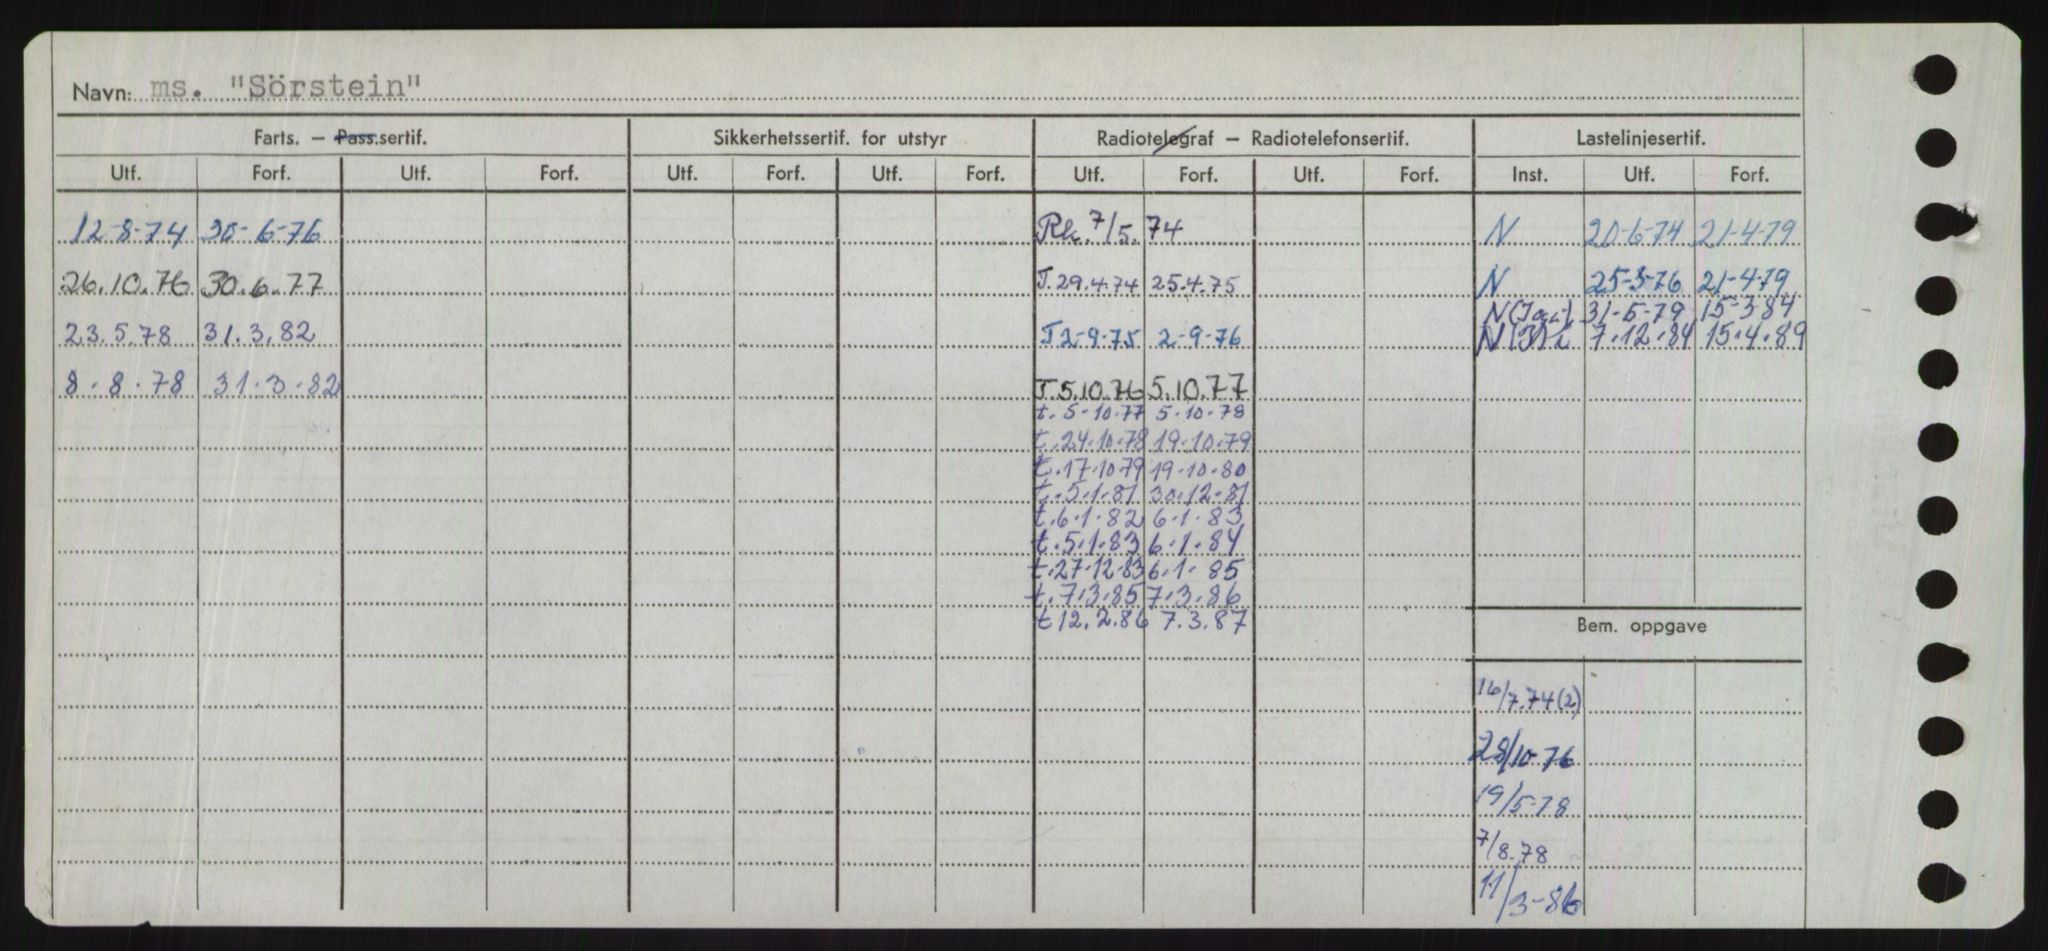 Navn: ms. "Sörstein"
Farts. – Pass.sertif. Sikkerhetssertif. for utstyr Radiotelegraf – Radiotelefonsertif. Lastelinjesertif.
Utf. Forf. Utf. Forf. Utf. Forf. Utf. Forf. Utf. Forf. Utf. Forf. Inst. Utf. Forf.
12-8-74 30-6-76 Rk. 7/5. 74 N 20-6-74 21-4-79
26.10.76 30.6.77 T.29.4.74 25.4.75 N 25-3-76 21-4-79
N 31-5-79 15-3-84
23.5.78 31.3.82 T2-9-75 2-9-76 N 7.12.84 15.4.89
8.8.78 31.3.82 T.5.10.76 5.10.77
t. 5-10.77 5.10.78
t.24.10.78 19.10.79
t.17.10.79 19.10.80
t.5.1.81 30.12.81
t.6.1.82 6.1.83
t.5.1.83 6.1.84
t.27.12.83 6.1.85
t.7.3.85 7.3.86
t 12.2.86 7.3.87
Bem. oppgave
16/7.74(2)
28/10-76
19/5-78
7/8.78
11/3-86